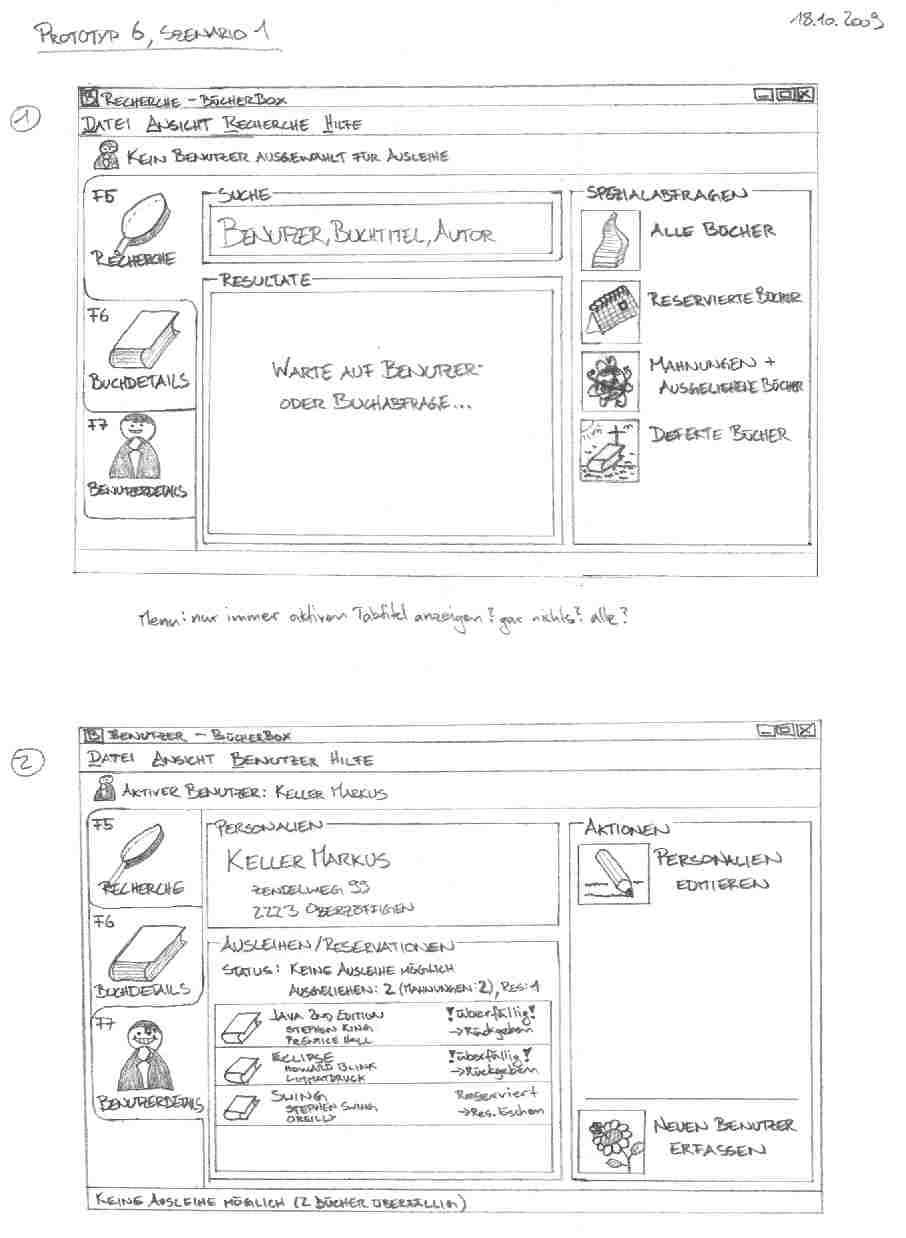 PROTOTYP 6, SZENARIO 1
18.10.2009
1
B RECHERCHE - BÜCHERBOX
DATEI ANSICHT RECHERCHE HILFE
KEIN BENUTZER AUSGEWÄHLT FÜR AUSLEIHE
F5
RECHERCHE
F6
BUCHDETAILS
F7
BENUTZERDETAILS
SUCHE
BENUTZER, BUCHTITEL, AUTOR
RESULTATE
WARTE AUF BENUTZER-
ODER BUCHABFRAGE...
SPEZIALABFRAGEN
ALLE BÜCHER
RESERVIERTE BÜCHER
MAHNUNGEN +
AUSGELIEHENE BÜCHER
DEFEKTE BÜCHER
Menu: nur immer aktiven Tabtitel anzeigen? gar nichts? alle?
2
B BENUTZER - BÜCHERBOX
DATEI ANSICHT BENUTZER HILFE
AKTIVER BENUTZER: KELLER MARKUS
F5
RECHERCHE
F6
BUCHDETAILS
F7
BENUTZERDETAILS
PERSONALIEN
KELLER MARKUS
ZENDELWEG 99
2223 OBERZÖFFIGEN
AUSLEIHEN/RESERVATIONEN
STATUS: KEINE AUSLEIHE MÖGLICH
AUSGELIEHEN: 2 (MAHNUNGEN: 2), RES: 1
JAVA 2ND EDITION
STEPHEN KING
PRENTICE HALL
!überfällig!
→Rückgeben
ECLIPSE
HOWARD BLINK
!überfällig!
→Rückgeben
SWING
STEPHEN SWING
OREILLY
Reserviert
→Res. löschen
AKTIONEN
PERSONALIEN
EDITIEREN
NEUEN BENUTZER
ERFASSEN
KEINE AUSLEIHE MÖGLICH (2 BÜCHER ÜBERFÄLLIG)